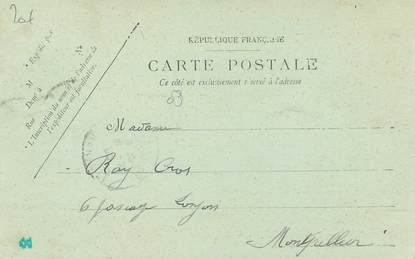 RÉPUBLIQUE FRANÇAISE
CARTE POSTALE
Ce côté est exclusivement réservé à l'adresse
Expédié par
M
Demt à
Rue
N°
L'Inscription du nom et de l'adresse de
l'expéditeur est facultative.
Madame
Ray Cros
6 passage Lonjon
Montpellier